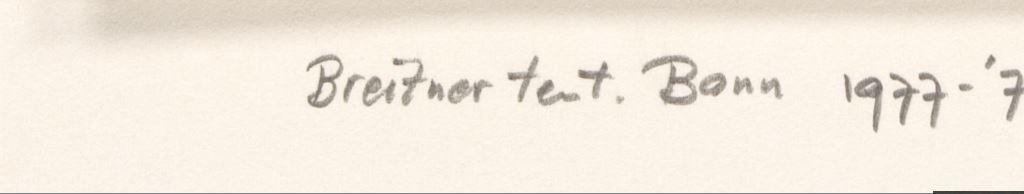 Breitner tent. Bonn 1977-'7